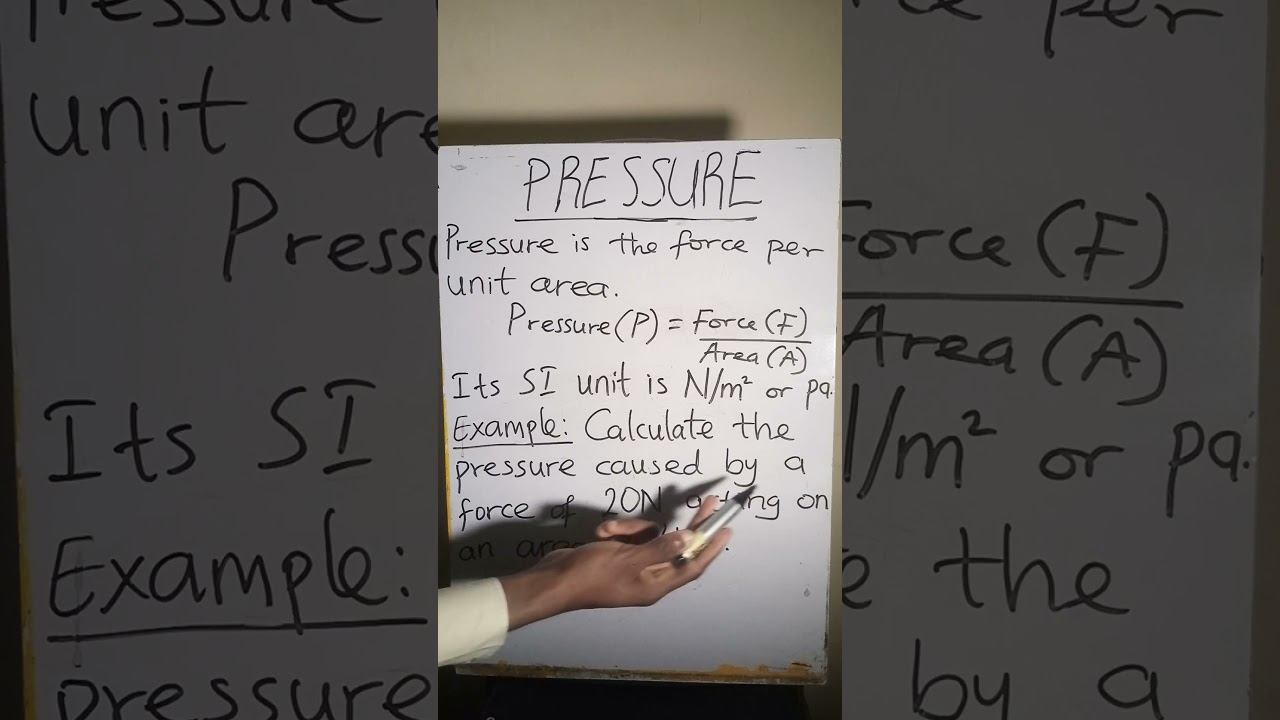 PRESSURE
Pressure is the force per
unit area.
Pressure (P) = Force (F)
Area (A)
Its SI unit is N/m² or pa.
Example: Calculate the
pressure caused by a
force of 20N acting on
an area